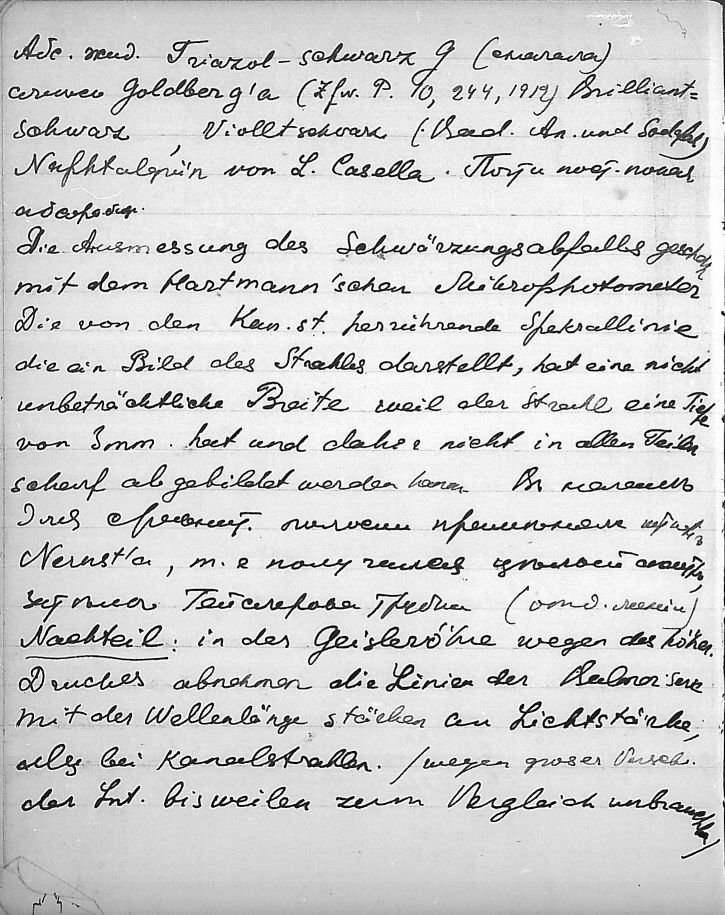 Абс. жид. Triazol-schwarz g (сначала)
Goldberg'a (Zfw. P. 10, 244, 1912) Brilliant=
schwarz, Violltschwarz (Bad. An. und Sodafbr)
Naphtalgrün von L. Casella. Почти
Die Ausmessung des Schwärzungsabfalles gesch
mit dem Hartmann'schen Mikrophotometer
Die von den Kan.st. herrührende Spektrallinie
die ein Bild des Strahles darstellt, hat eine nicht
unbeträchtliche Breite weil der Strahl eine Tiefe
von 3mm. hat und daher nicht in allen Teilen
scharf abgebildet werden kann. В начале
для сравнит.
Nernst'a, т.е получился
затем Гейслерова трубка (
Nachteil: in der Geislerröhre wegen des höher.
Druckes abnehmen die Linien der Balmerserie
mit der Wellenlänge stärker an Lichtstärke,
als bei Kanalstrahlen. /wegen groser Versch.
der Int. bisweilen zum Vergleich unbrauchbar/